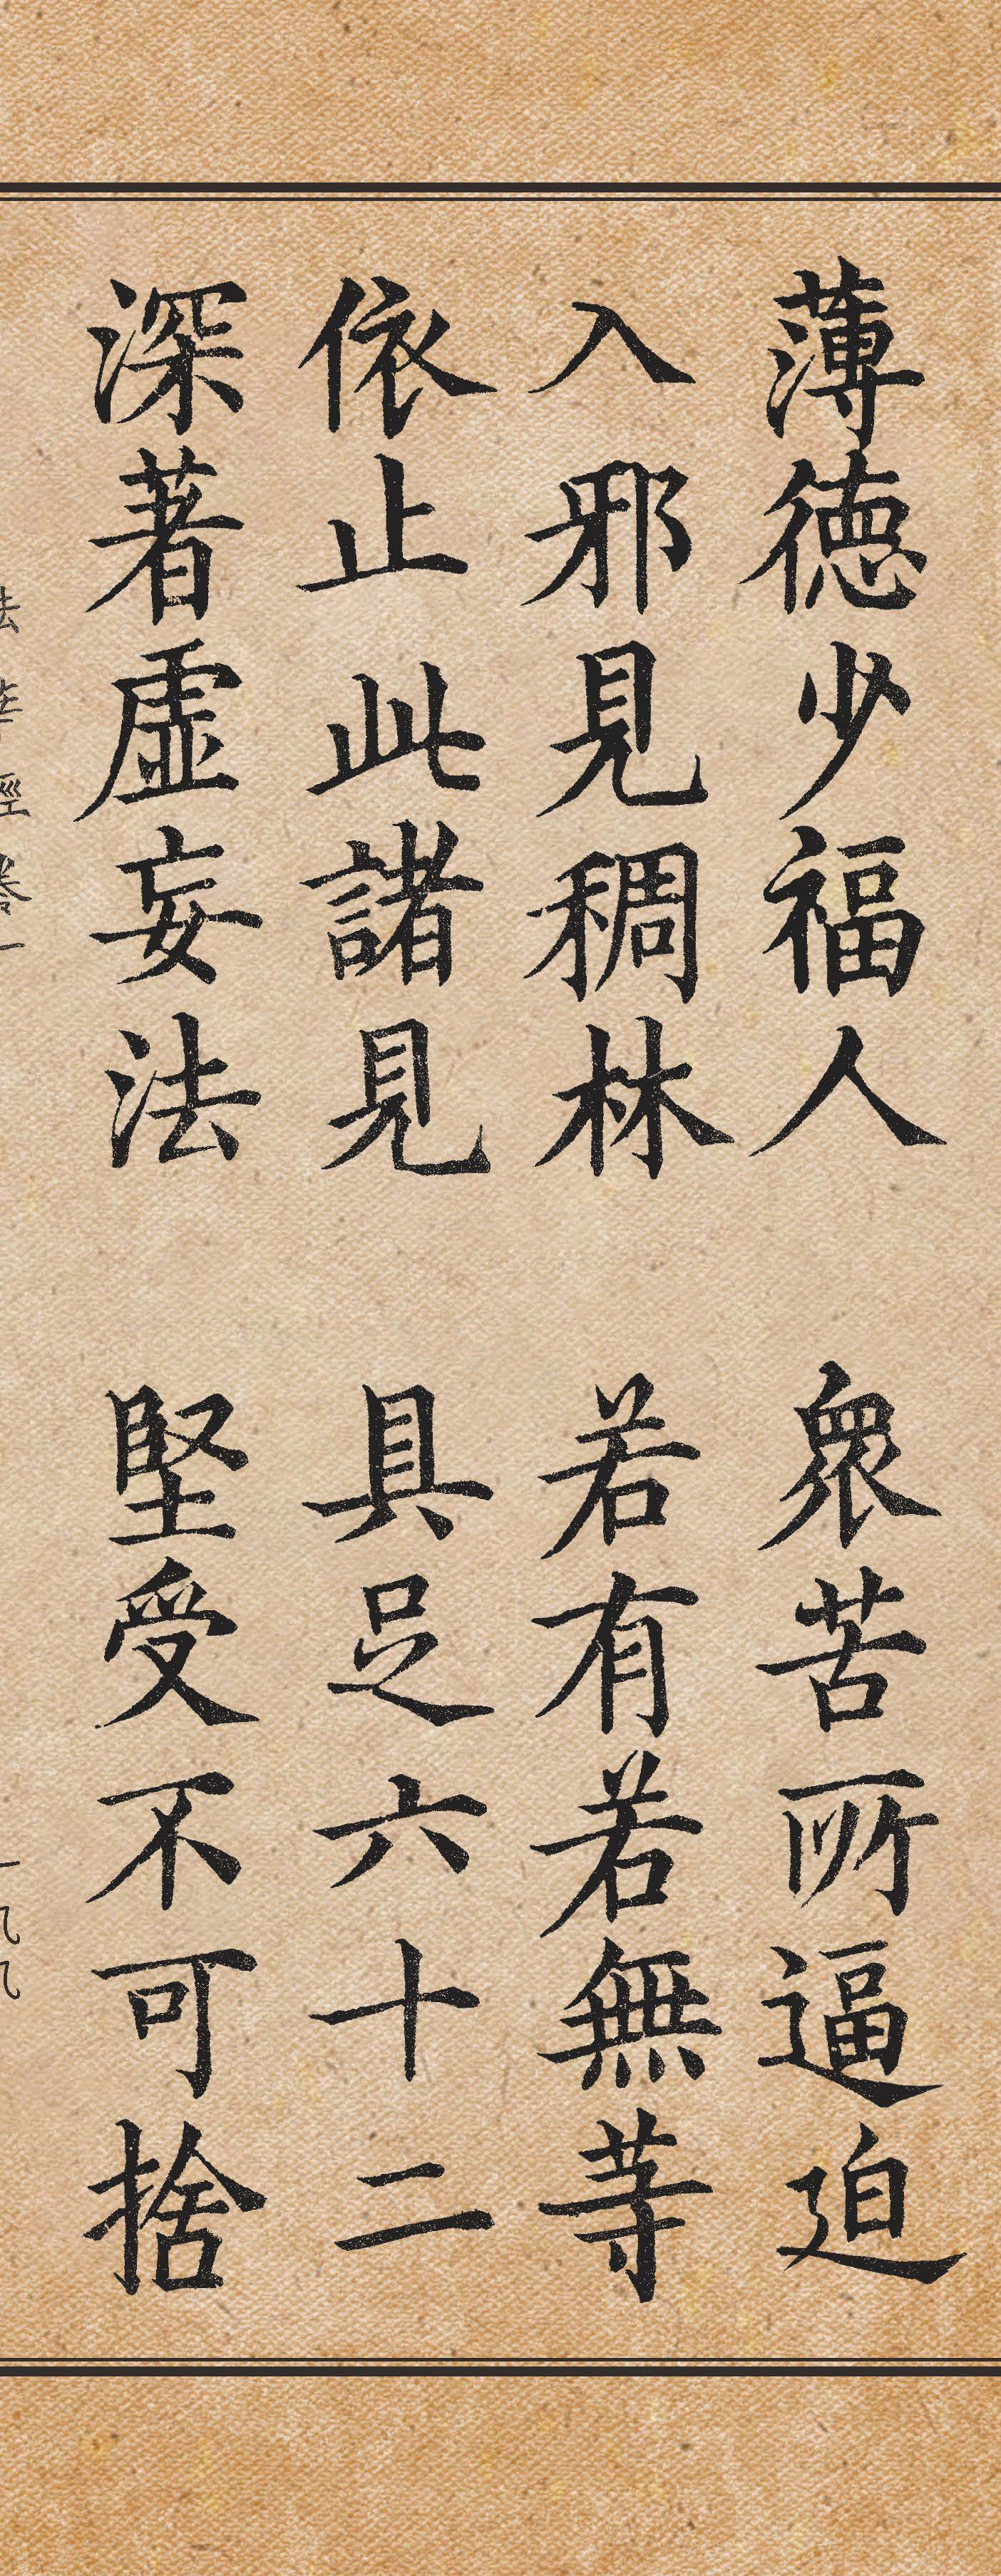 薄德少福人 衆苦所逼迫
入邪見稠林 若有若無等
依止此諸見 具足六十二
深著虛妄法 堅受不可捨
法華經卷一 一九九